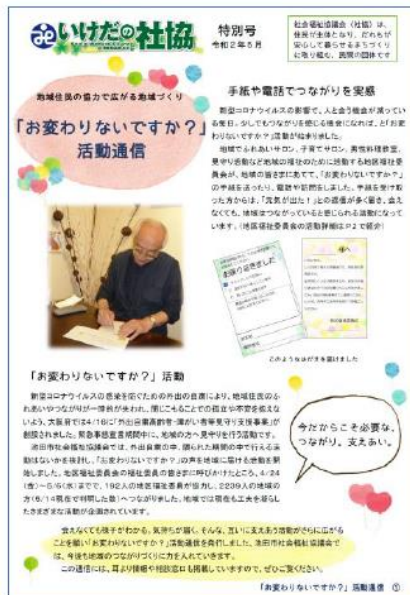 いけだの社協
特別号
令和2年5月
社会福祉協議会（社協）は、
住民が主体となり、だれもが
安心して暮らせるまちづくり
に取り組む、民間の団体です
地域住民の協力で広がる地域づくり
「お変わりないですか？」
活動通信
手紙や電話でつながりを実感
新型コロナウイルスの影響で、人と会う機会が減ってい
る毎日。少しでもつながりを感じる機会になれば、と「お変
わりないですか？」活動が始まりました。
地域でふれあいサロン、子育てサロン、男性料理教室、
見守り活動など地域の福祉のために活動する地区福祉委
員会が、地域の皆さまにあてて、「お変わりないですか？」
の手紙を送ったり、電話や訪問をしました。手紙を受け取
った方からは、「元気が出た！」との返信が多く届き、会え
なくても、地域はつながっていると感じられる活動になって
います。（地区福祉委員会の活動詳細はP2で紹介）
このようなはがきを届けました
「お変わりないですか？」活動
新型コロナウイルスの感染を防ぐための外出の自粛により、地域住民のふ
れあいやつながりが一時的が失われ、閉じこもることでの孤立や不安を抱えな
いよう、大阪府では4/16に「外出自粛高齢者・障がい者等見守り支援事業」が
創設されました。緊急事態宣言期間中に、地域の方へ見守りを行う活動です。
池田市社会福祉協議会では、外出自粛の中、限られた期間の中で行える活
動はないかを検討し、「お変わりないですか？」の声を地域に届ける活動を開
始しました。地区福祉委員会の福祉委員の皆さまに呼びかけたところ、4/24
（金）～5/6（水）までで、192人の地区福祉委員が協力し、2239人の地域の
方（5/14現在で判明した数）へつながりました。地域では現在も工夫を凝らし
たさまざまな活動が企画されています。
今だからこそ必要な、
つながり。支えあい。
会えなくても様子がわかる。気持ちが届く。そんな、互いに支えあう活動がさらに広がる
ことを願い「お変わりないですか？」活動通信を発行しました。池田市社会福祉協議会で
は、今後も地域のつながりづくりに力を入れていきます。
この通信には、耳より情報や相談窓口も掲載していますので、ぜひご覧ください。
「お変わりないですか？」活動通信 ①